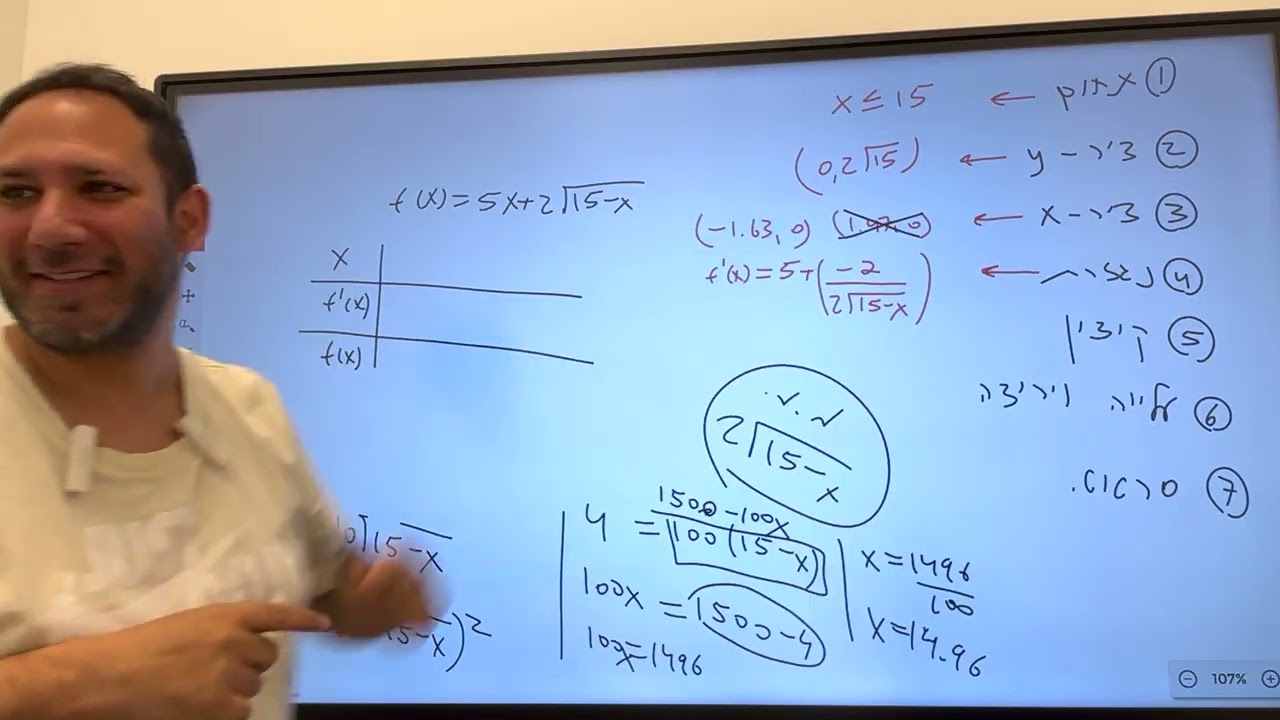 ① x תחום ← x ≤ 15
② חי' עם y ← (0, 2√15)
③ חי' עם x ← (1.97, 0) (-1.63, 0)
④ נגזרת ← f'(x) = 5 + (-2 / 2√15-x)
⑤ קיצון
⑥ עלייה וירידה
⑦ סרטוט.
f(x) = 5x + 2√15-x
x
f'(x)
f(x)
2√15-x
10√15-x
15-x)²
4 = 1500 - 100x
100(15-x)
100x = 1500-4
100x = 1496
x = 1496/100
x = 14.96
107%